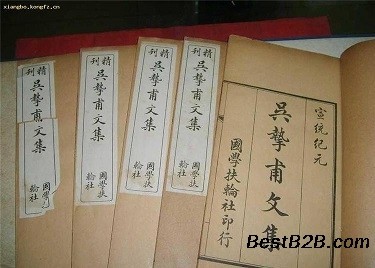 xiangbo.kongfz.cn
宣統紀元
吳摯甫文集
國學扶輪社印行
精刊
吳摯甫文集
國學扶
輪社
精刊
吳摯甫文集
國學扶
輪社
精刊
吳摯甫文集
國學扶
輪社
精刊
吳摯甫文集
國學
輪社
BestB2B.com